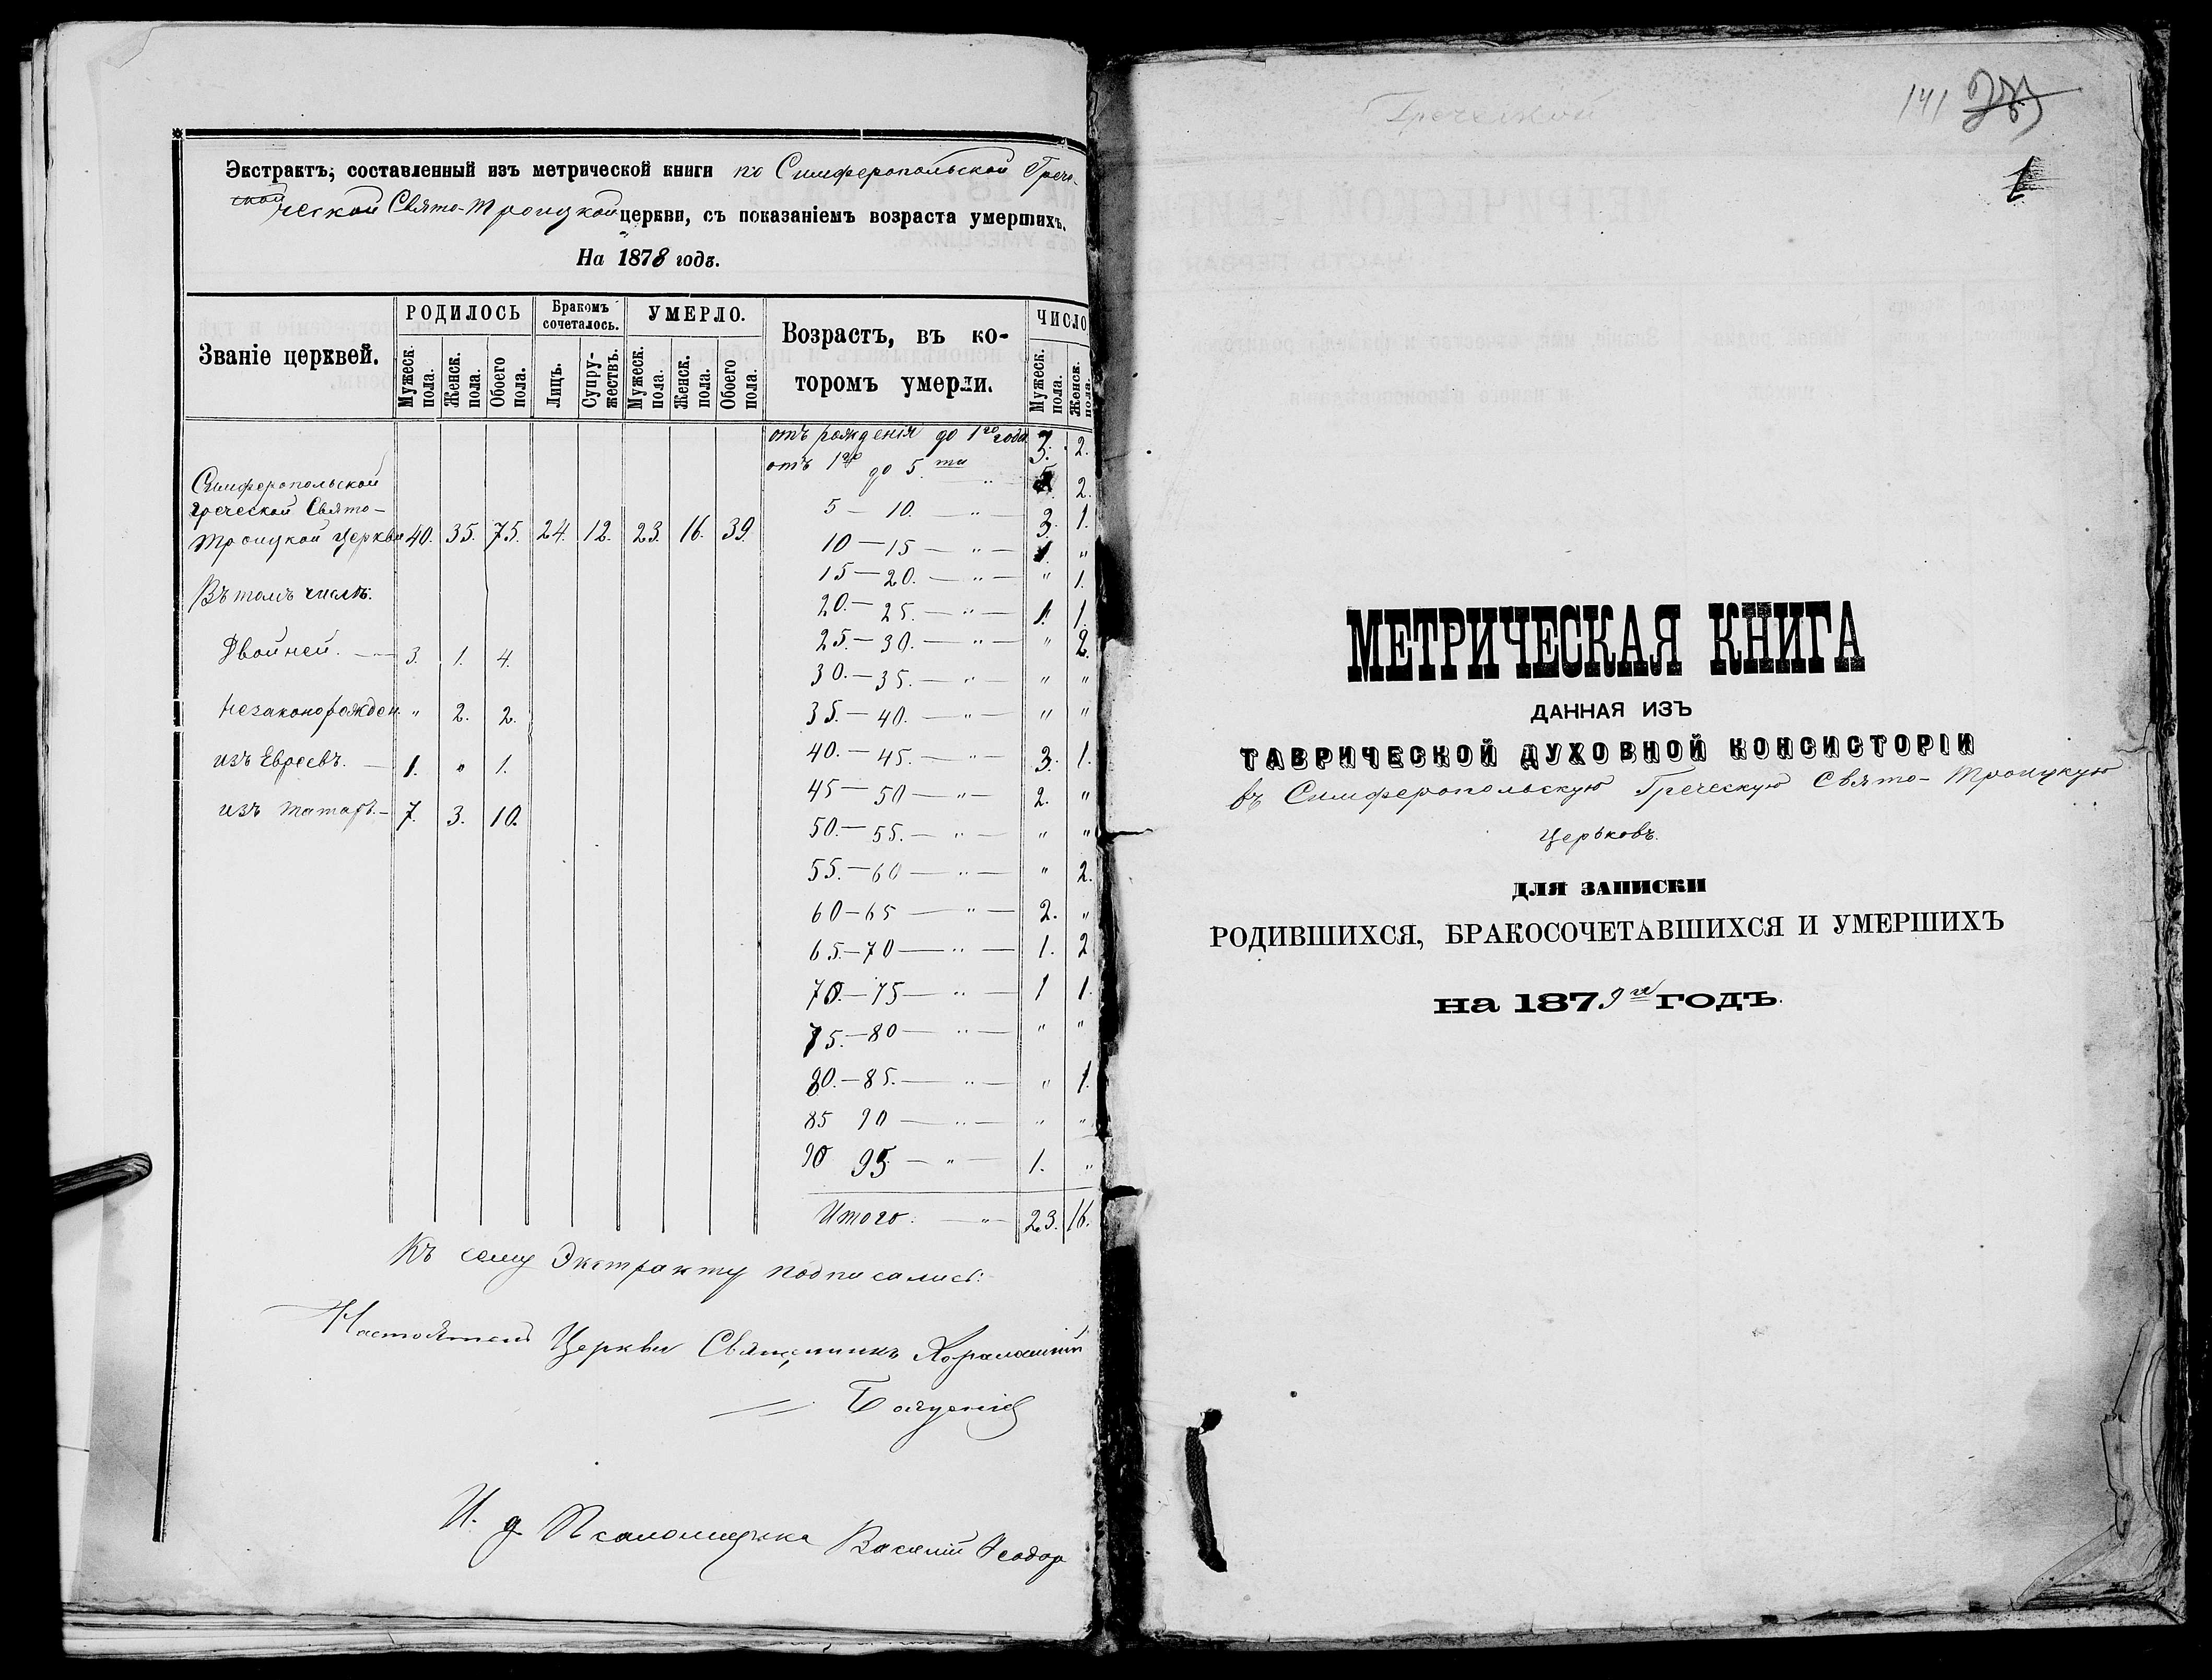 Экстрактъ, составленный изъ метрической книги по Симферопольской Грече-
ской
ческой Свято-Троицкой церкви, съ показаніемъ возраста умершихъ.
На 1878 годъ.
Званіе церквей. РОДИЛОСЬ Бракомъ сочеталось. УМЕРЛО. Возрастъ, въ которомъ умерли. ЧИСЛО
Мужеск. пола. Женск. пола. Обоего пола. Лицъ. Супружествъ. Мужеск. пола. Женск. пола. Обоего пола. Мужеск. пола. Женск. пола.
отъ рожденія до 1го года 3. 2.
отъ 1го до 5ти " 5. 2.
5 — 10. — " — 3. 1.
10 — 15 — " — 1. "
15 — 20. — " — " 1.
20. — 25. — " — 1. 1.
25. — 30. — " — " 2.
30. — 35. — " — " "
35. — 40. — " — " "
40. — 45. — " — 3. 1.
45 — 50 — " — 2. "
50. — 55. — " — " "
55. — 60 — " — " 2.
60 — 65 — " — 2. "
65. — 70 — " — 1. 2
70. — 75 — " — 1 1.
75. — 80 — " — " "
80. — 85. — " — " 1.
85 90 — " — " "
90 95. — " — 1. "
Итого: — " — 23. 16.
Симферопольской
греческой Свято-
Троицкой церкви 40. 35. 75. 24. 12. 23. 16. 39.
Въ томъ числѣ:
Двойней. — 3. 1. 4.
Незаконорожден. " 2. 2.
изъ Евреевъ. — 1. " 1.
изъ татаръ. — 7. 3. 10.
Къ сему Экстракту подписались:
Настоятель Церкви Священникъ
И. д. Псаломщика Василий Феодор
Греческой
141
1
МЕТРИЧЕСКАЯ КНИГА
ДАННАЯ ИЗЪ
ТАВРИЧЕСКОЙ ДУХОВНОЙ КОНСИСТОРІИ
въ Симферопольскую Греческую Свято-Троицкую
Церьковь.
ДЛЯ ЗАПИСКИ
РОДИВШИХСЯ, БРАКОСОЧЕТАВШИХСЯ И УМЕРШИХЪ
на 1879й ГОДЪ.